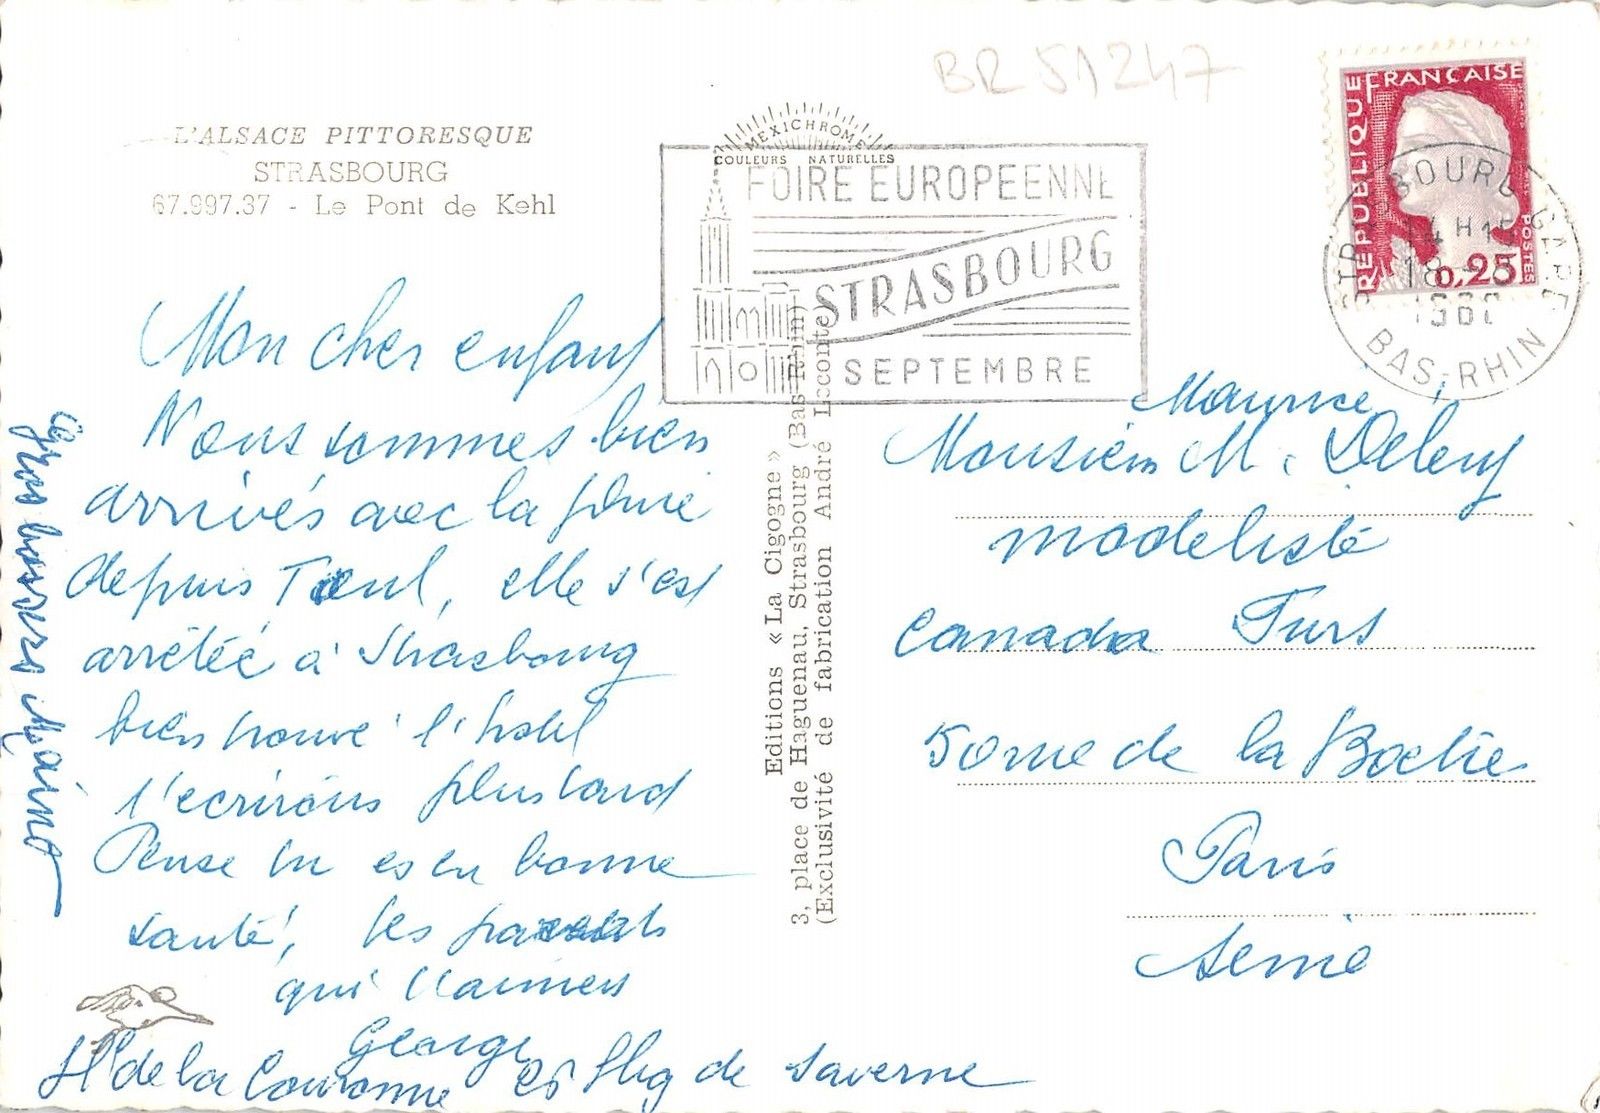 BR 51247
L'ALSACE PITTORESQUE
STRASBOURG
67.997.37 - Le Pont de Kehl
MEXICHROME
COULEURS NATURELLES
FOIRE EUROPEENNE
STRASBOURG
SEPTEMBRE
RÉPUBLIQUE FRANÇAISE
POSTES
0,25
STRASBOURG GARE
14 H 15
18 -
BAS-RHIN
Mon cher enfant
Nous sommes bien
arrivés avec la pluie
depuis Toul, elle s'est
arrêtée à Strasbourg
bien trouvé l'hotel
t'ecrirons plus tard
Pense tu es en bonne
santé, tes parents
qui t'aiment
George
Ht de la Couronne 26 fbg de Saverne
gros baisers
Editions « La Cigogne »
3, place de Haguenau, Strasbourg (Bas-Rhin)
(Exclusivité de fabrication André Leconte)
Maurice
Monsieur M. Deleuy
modeliste
Canada Furs
50 rue de la Boetie
Paris
Seine